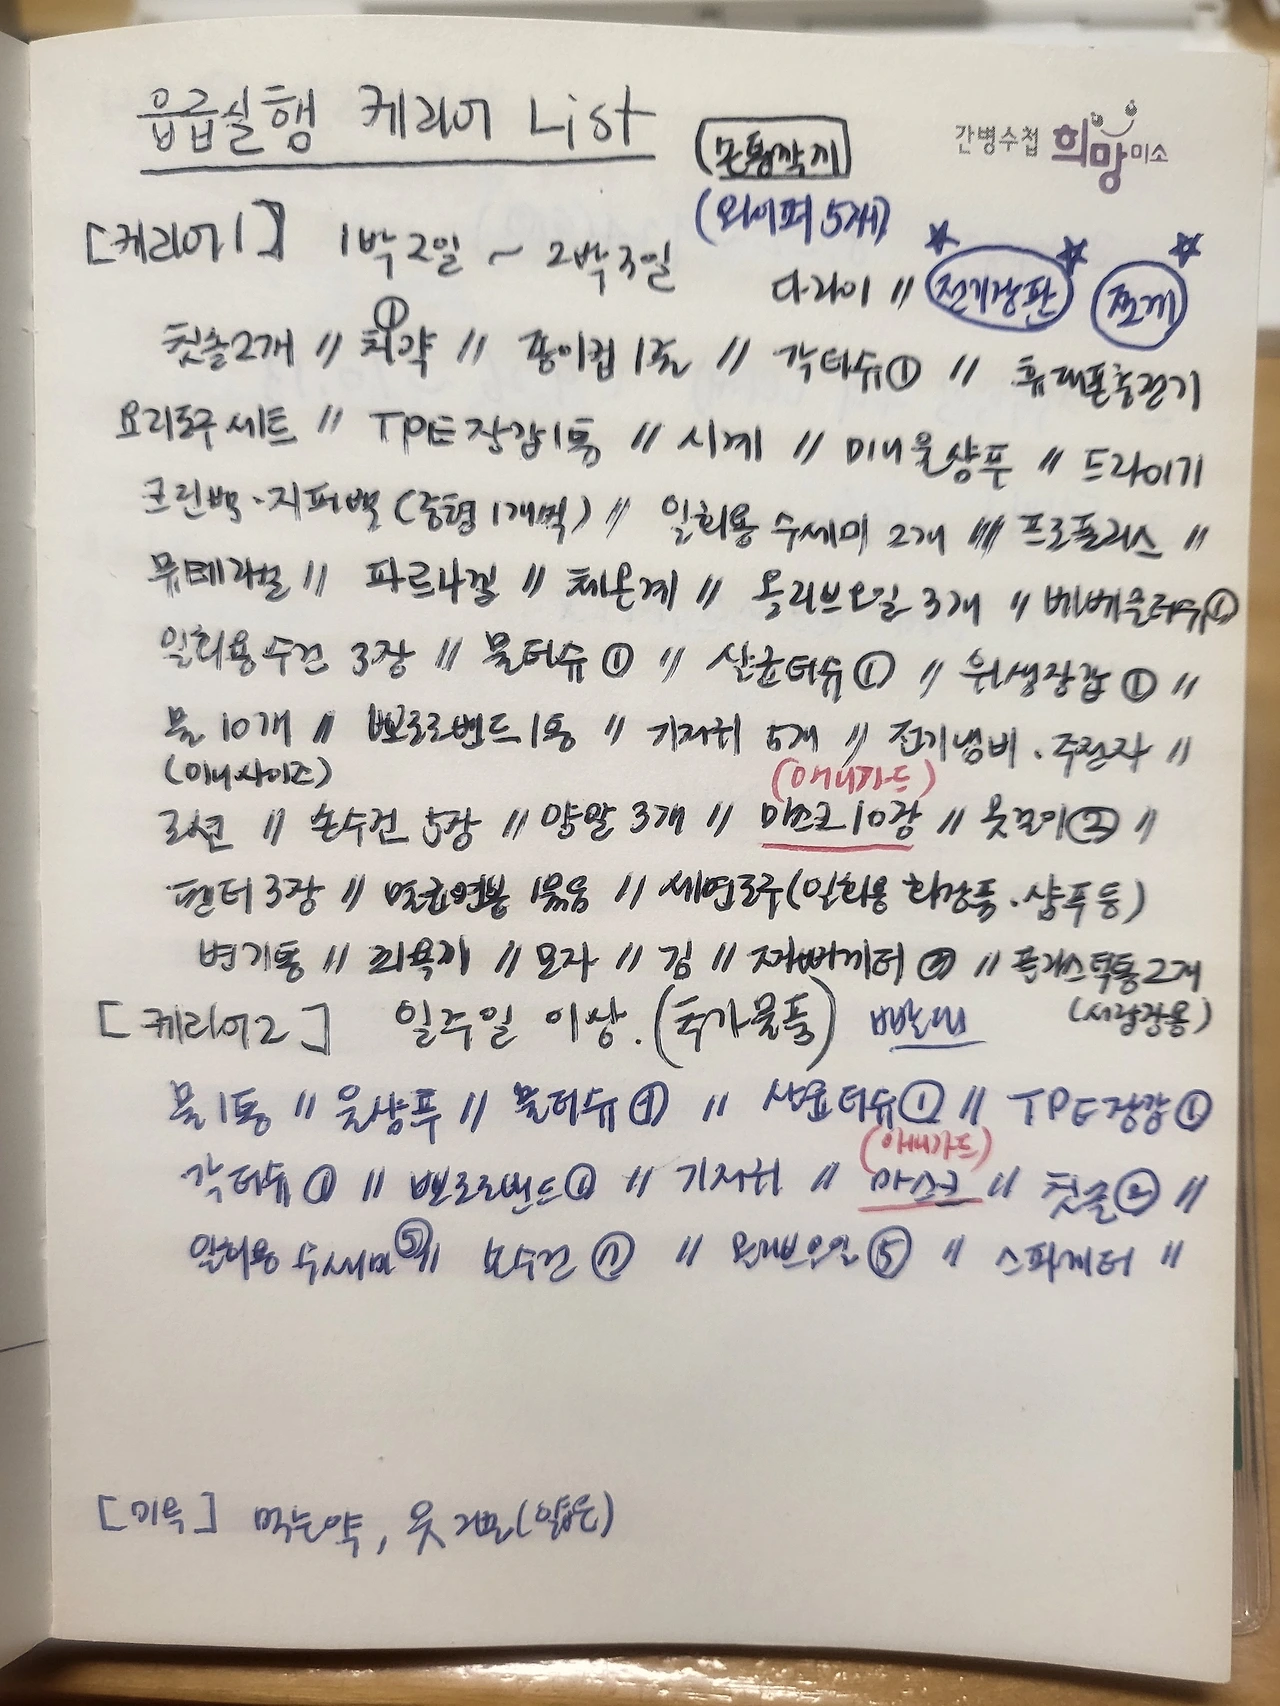 응급실행 케리어 List
(손톱깍기)
간병수첩 희망미소
(와이퍼 5개)
[케리어1] 1박2일 ~ 2박3일
다라이 // 전기장판 쪼끼
칫솔2개 // 치약 ① // 종이컵 1줄 // 각티슈① // 휴대폰충전기
요리도구 세트 // TPE장갑1통 // 시계 // 미니울샴푸 // 드라이기
크린백·지퍼백 (중형1개씩) // 일회용 수세미 2개 // 프로폴리스 //
뮤테라벌 // 파르나겔 // 체온계 // 올리브오일 3개 // 베베물티슈①
일회용수건 3장 // 물티슈① // 살균티슈① // 위생장갑① //
물 10개 // 뽀로로밴드1통 // 기저귀 5개 // 전기냄비·주전자 //
(미니사이즈)
(애니가드)
로션 // 손수건 5장 // 양말 3개 // 마스크10장 // 옷걸이② //
팬티3장 // 멸균면봉 1묶음 // 세면도구(일회용 화장품·샴푸등)
변기통 // // 모자 // 김 // // 플라스틱통2개
(서랍장용)
[케리어2] 일주일 이상. (추가물품) 빨대
물1통 // 울샴푸 // 물티슈① // 살균티슈① // TPE장갑①
(애니가드)
각티슈① // 뽀로로밴드① // 기저귀 // 마스크 // 칫솔② //
일회용 수세미⑤ // 손수건① // 올리브오일⑤ // 스파게티 //
[기록] 먹는약, 옷